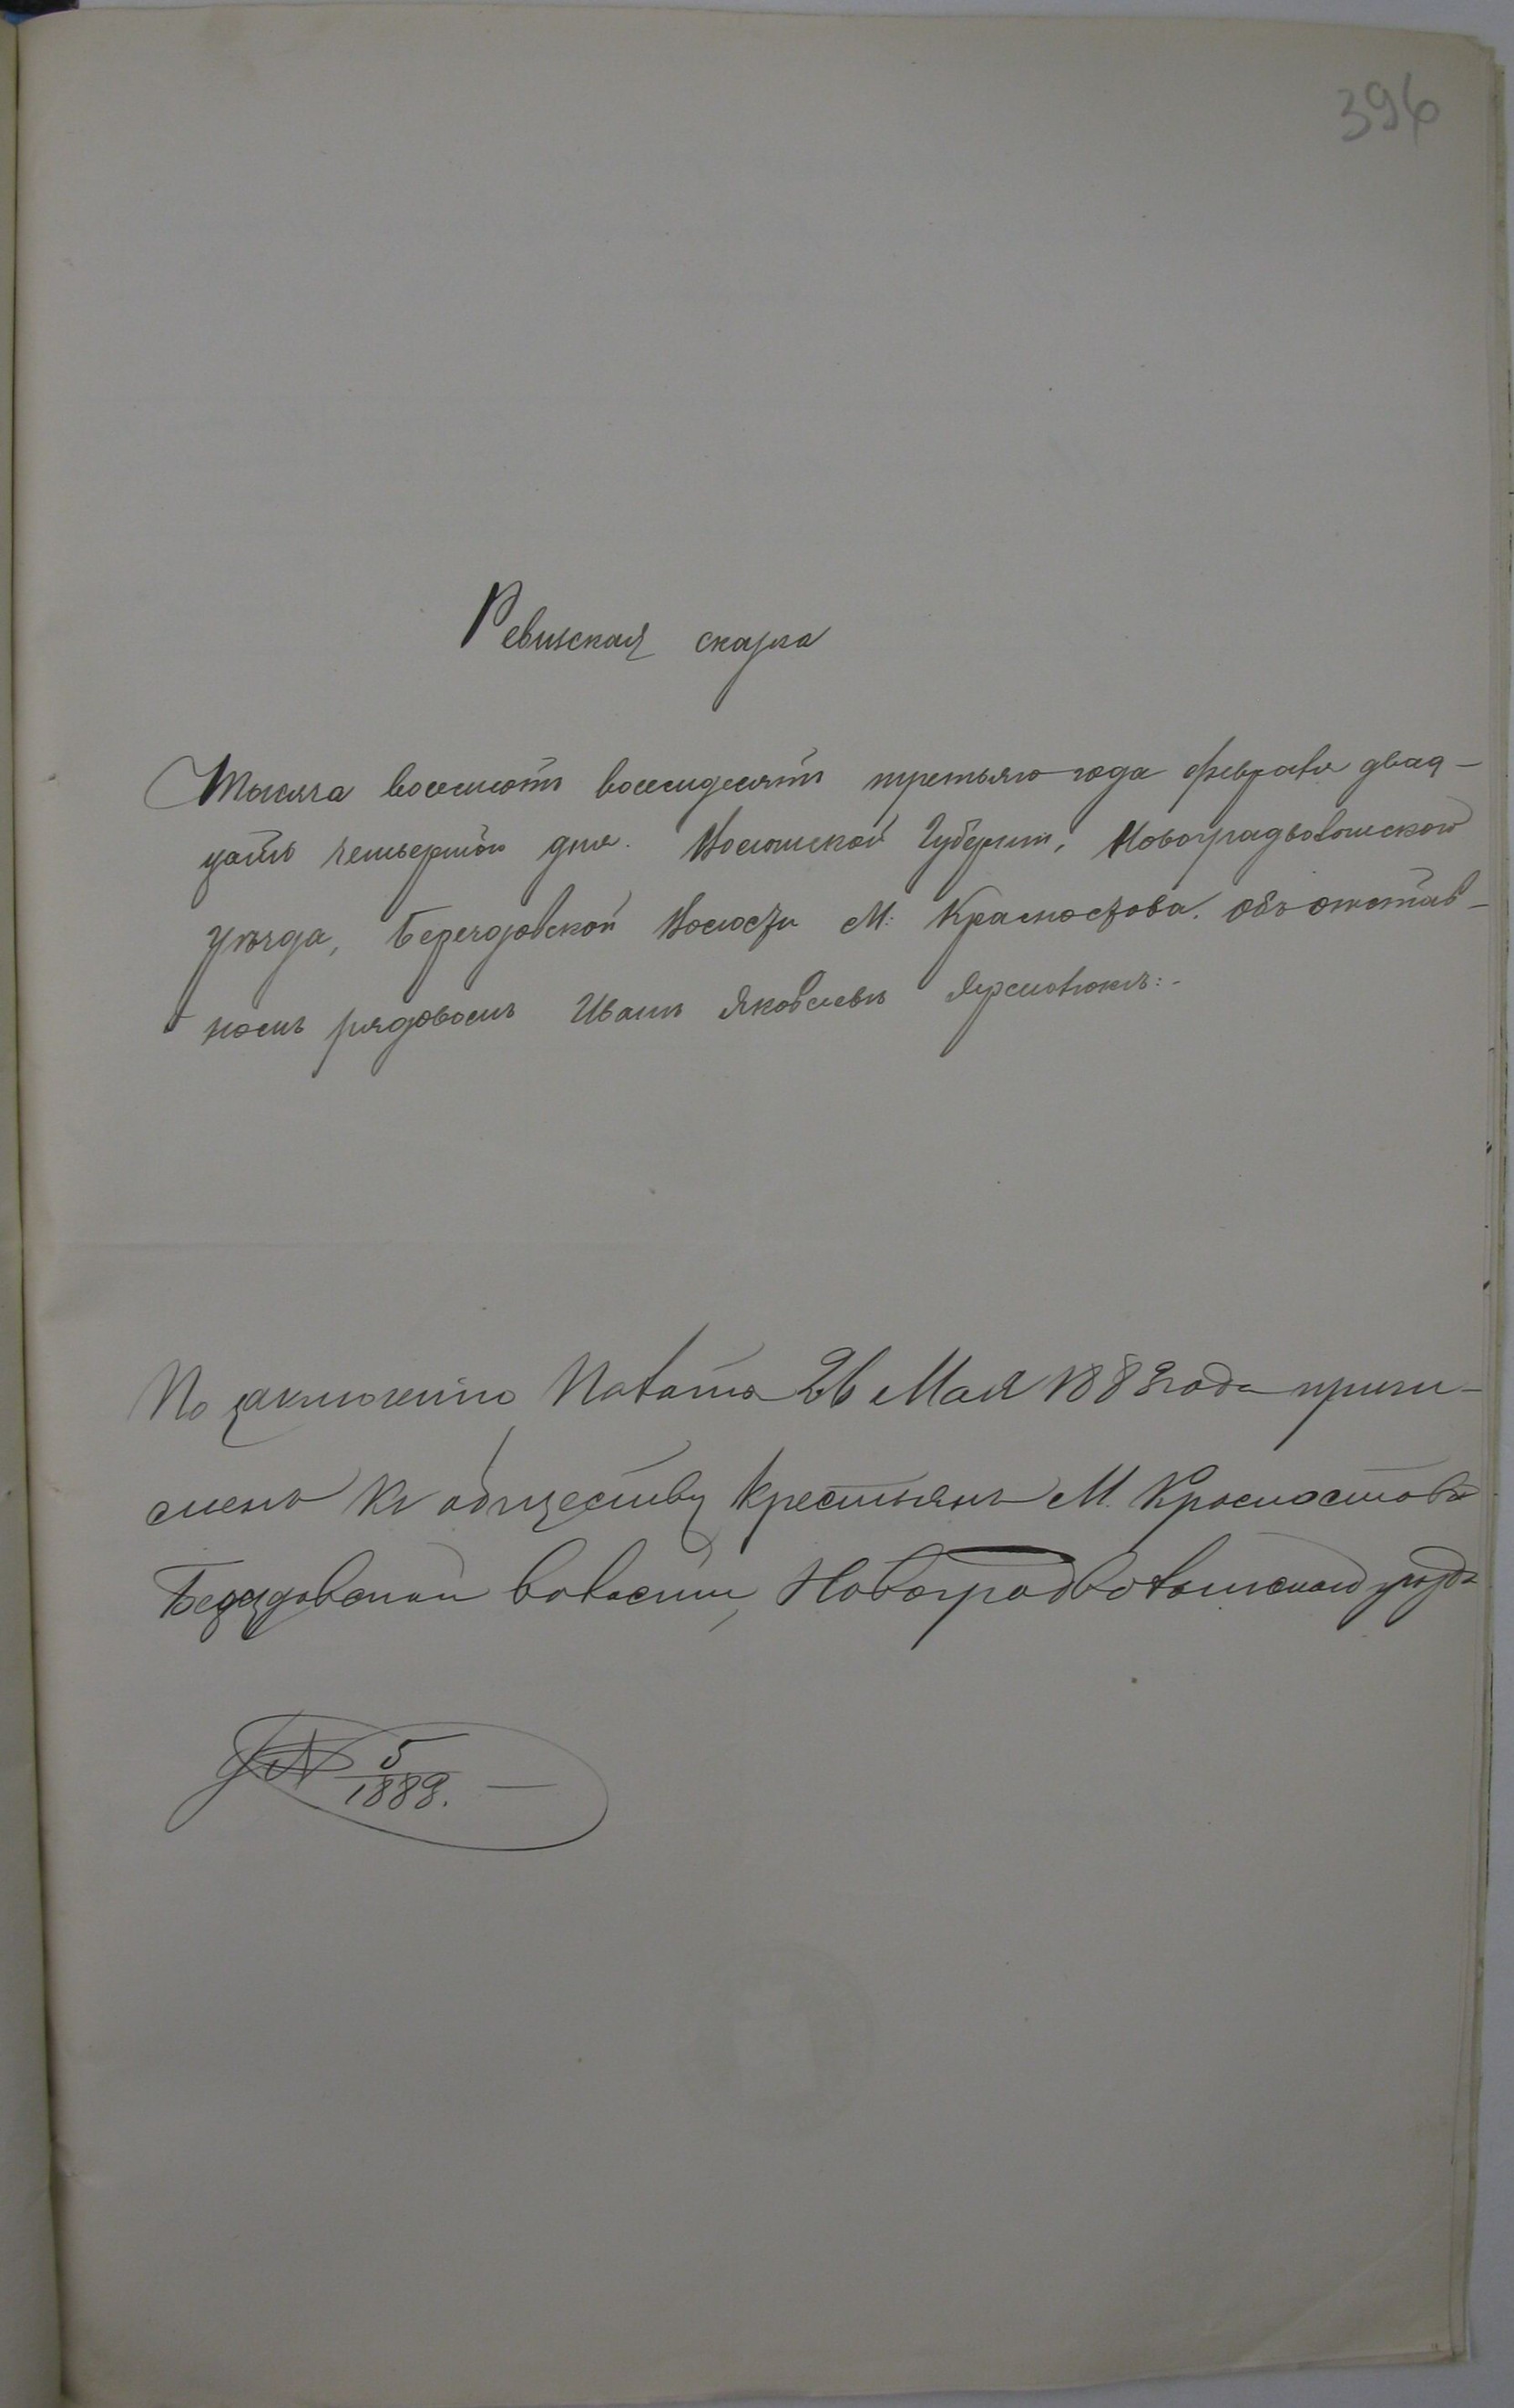 396
Ревизская сказка
Тысяча восемсотъ восемдесятъ третьяго года февраля двад-
цать четвертого дня. Волынской Губерніи, Новоградволынского
уѣзда, Берездовской Волости М: Красностава. объ отстав-
номъ рядовомъ Иванѣ Яковлевѣ
По заключенію Палаты 26 Мая 1883 года причи-
сленъ къ обществу крестьянъ М. Красностава
Берездовской волости, Новоградволынского уѣзда
5
1889. —